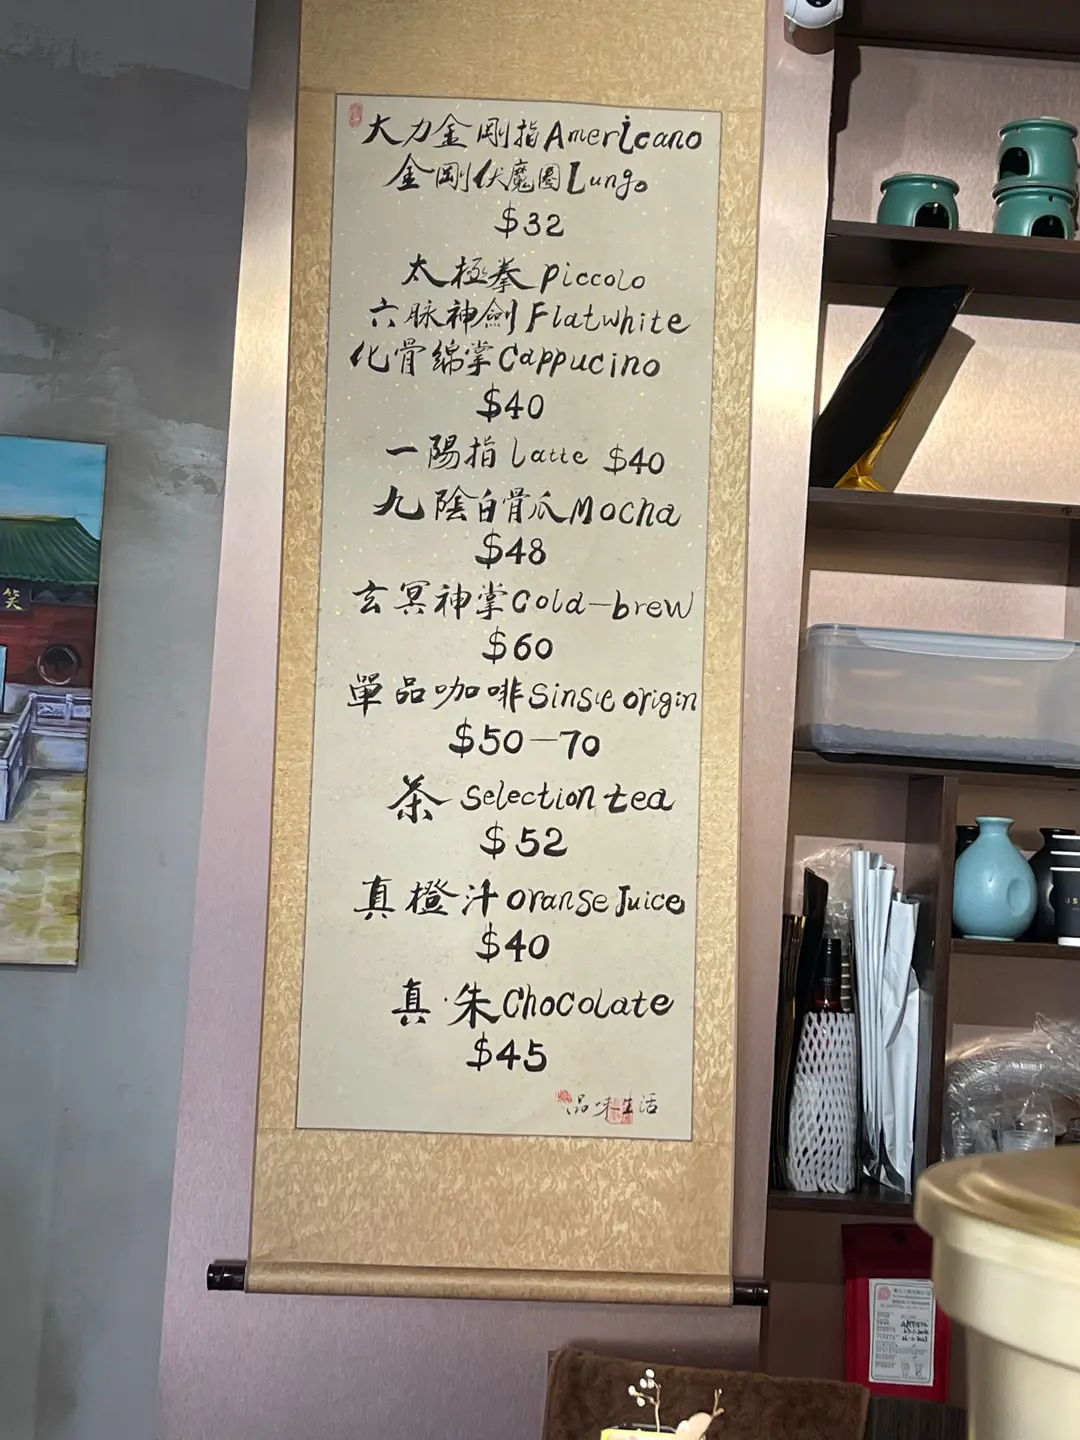 大力金剛指 Americano
金剛伏魔圈 Lungo
$32
太極拳 piccolo
六脉神劍 Flatwhite
化骨綿掌 Cappucino
$40
一陽指 Latte $40
九陰白骨爪 Mocha
$48
玄冥神掌 Cold-brew
$60
單品咖啡 Single origin
$50-70
茶 Selection tea
$52
真橙汁 Orange Juice
$40
真·朱 Chocolate
$45
品味生活
笑